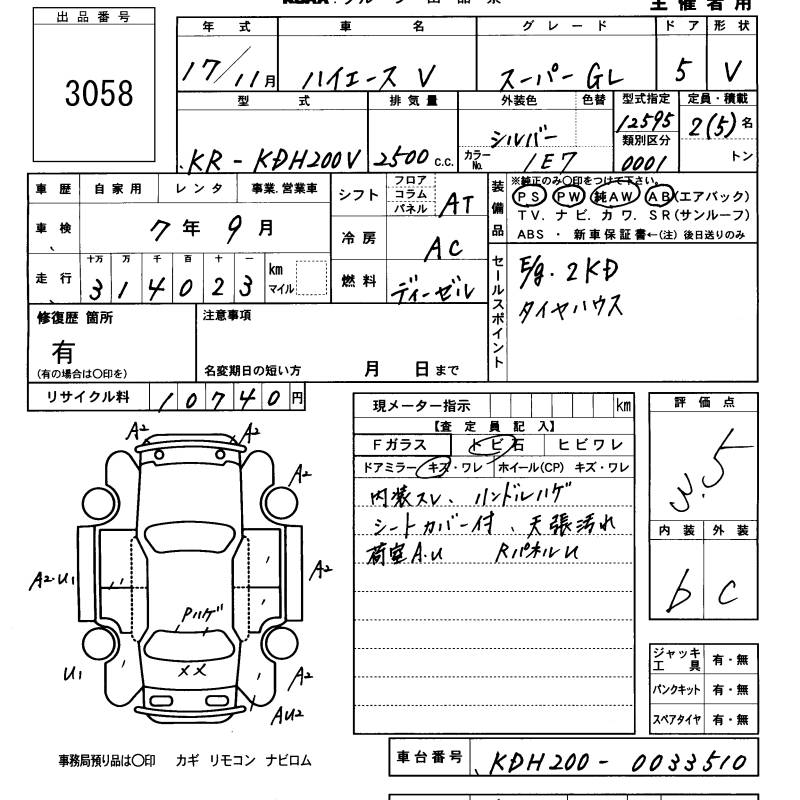 主催者用
出品番号
3058
年式 車名 グレード ドア 形状
17/11月 ハイエース V スーパーGL 5 V
型式 排気量 外装色 色替 型式指定 定員・積載
KR-KDH200V 2500 c.c. シルバー 12595 2(5)名
カラーNo. 1E7 類別区分 0001 トン
車歴 自家用 レンタ 事業.営業車
車検 7年9月
走行 十万 万 千 百 十 一
314023 km マイル
シフト フロア コラム パネル AT
冷房 AC
燃料 ディーゼル
装備品 ※純正のみ〇印をつけて下さい。
PS PW 純AW AB(エアバック)
TV. ナビ. カワ. SR(サンルーフ)
ABS ・ 新車保証書←(注) 後日送りのみ
セールスポイント
E/g. 2KD
タイヤハウス
修復歴 箇所
有
(有の場合は〇印を)
注意事項
名変期日の短い方 月 日まで
リサイクル料 10740円
現メーター指示 km
【査定員記入】
Fガラス トビ石 ヒビワレ
ドアミラー キズ・ワレ ホイール(CP) キズ・ワレ
内装スレ、ハンドルハゲ
シートカバー付、天張汚れ
荷室A.U RパネルU
評価点
3.5
内装 外装
b C
ジャッキ工具 有・無
パンクキット 有・無
スペアタイヤ 有・無
A2 A2
A2
A2.U1 A2
Pハゲ
××
U1 A2
AU2
事務局預り品は〇印 カギ リモコン ナビロム
車台番号 KDH200-0033510